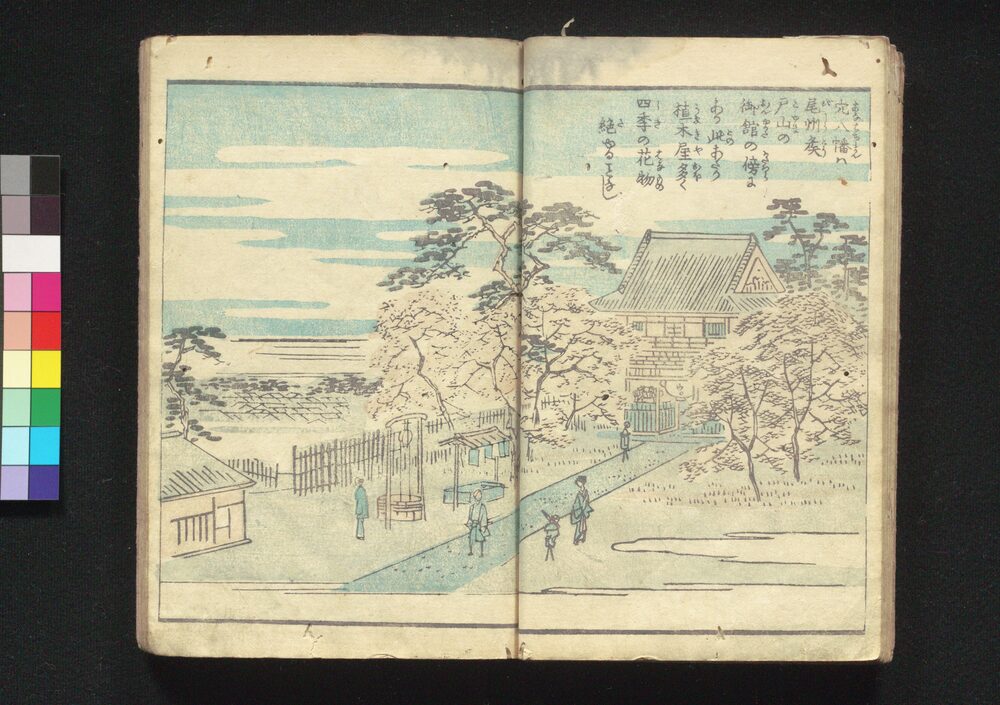 穴八幡ハ
尾州侯
戸山の
御館の傍に
あり此あたり
植木屋多く
四季の花物
絶ることなし